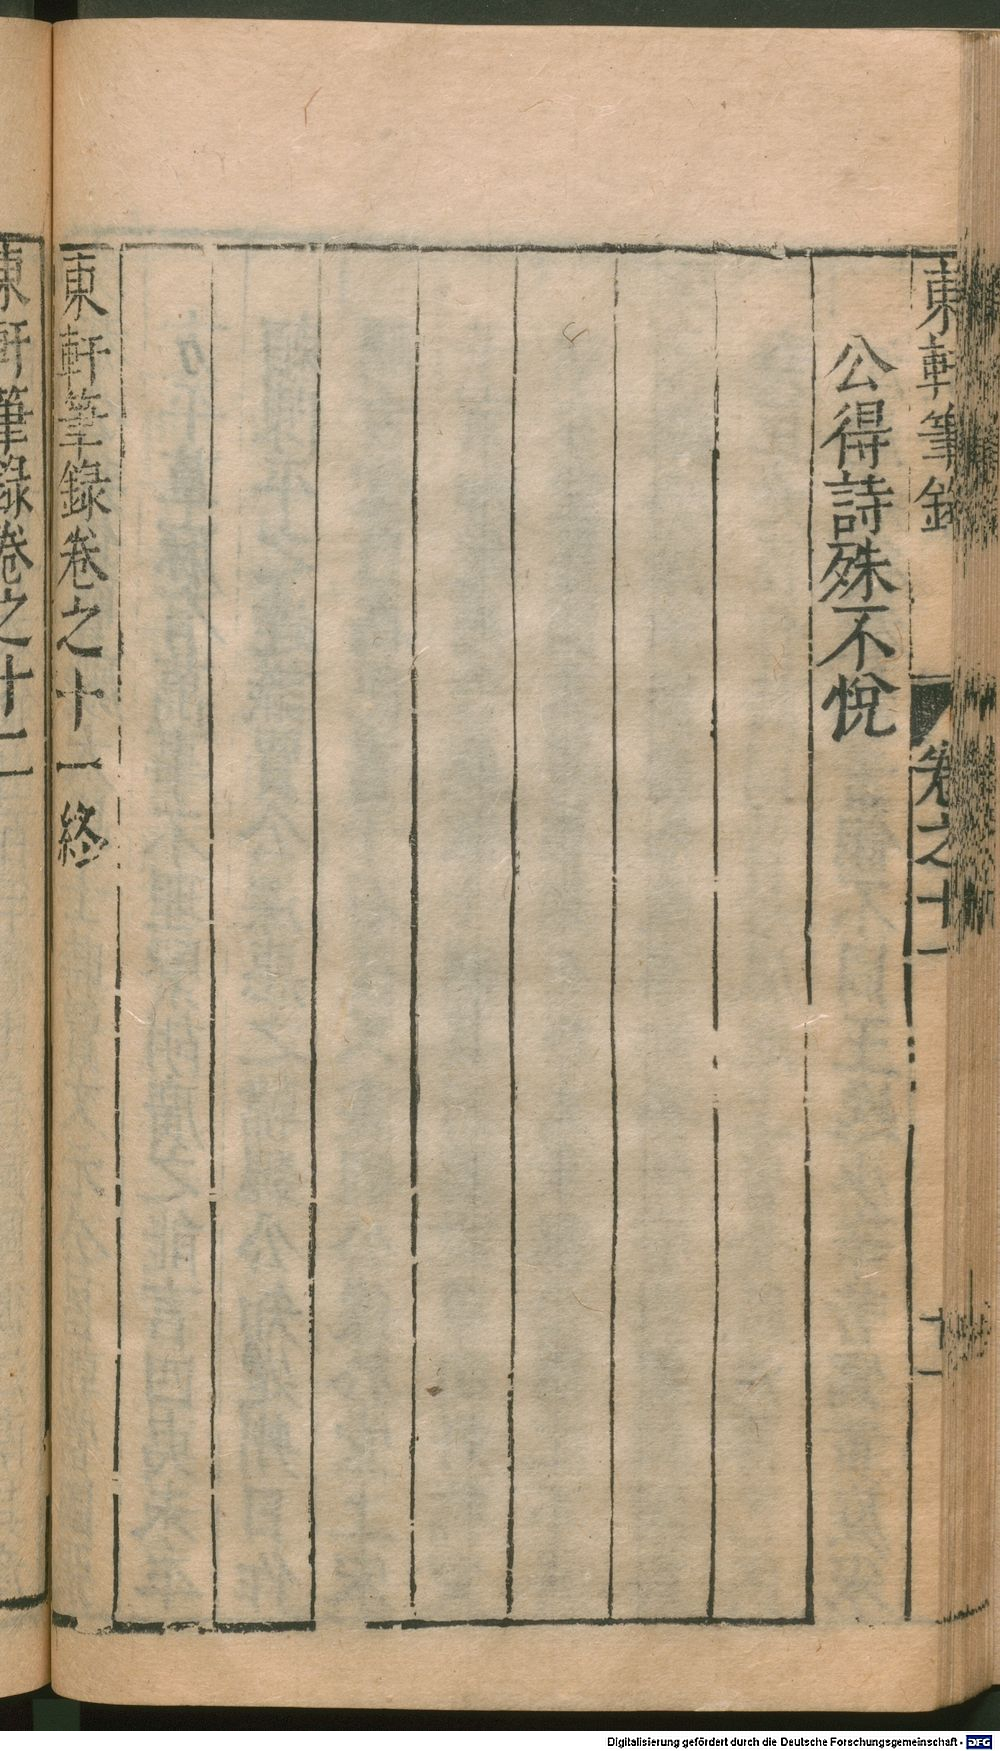 東軒筆錄
卷之十一
十一
公得詩殊不悅
東軒筆錄卷之十一終
東軒筆錄卷之十二
Digitalisierung gefördert durch die Deutsche Forschungsgemeinschaft - DFG